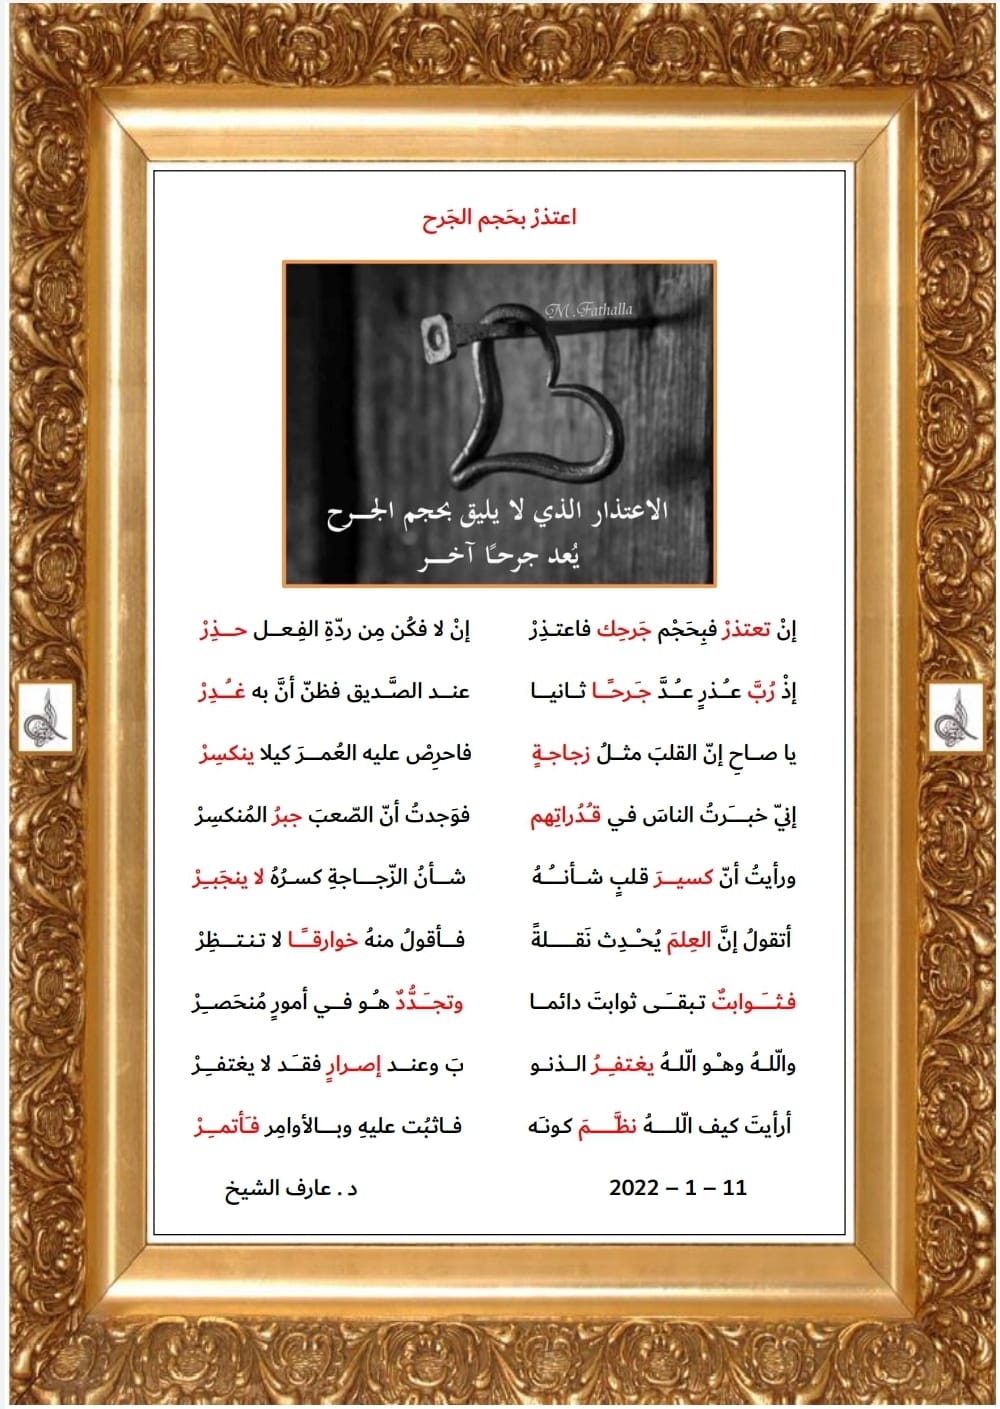 اعتذرْ بحَجم الجَرح
M.Fathalla
الاعتذار الذي لا يليق بحجم الجـرح
يُعد جرحًا آخـر
إنْ تعتذرْ فبِحَجْم جَرحِك فاعتـذِرْ إنْ لا فكُن مِن ردّةِ الفِعـل حـذِرْ
إذْ رُبَّ عـُذرٍ عـُدَّ جَرحًــا ثـانيـا عنـد الصَّـديق فظنّ أنَّ به غـُدِرْ
يا صـاحِ إنّ القلبَ مثـلُ زجاجـةٍ فاحرِصْ عليه العُمـرَ كيلا ينكسِرْ
إنيّ خبــَرتُ الناسَ في قـُدُراتِهم فوَجدتُ أنّ الصّعبَ جبرُ المُنكسِرْ
ورأيتُ أنّ كسيـرَ قلبٍ شـأنـُهُ شـأنُ الزّجــاجةِ كسـرُهُ لا ينجَبـِرْ
أتقولُ إنَّ العِلمَ يُحْـدِث نَقــلةً فـأقولُ منهُ خوارقـًـا لا تـنـتـظِرْ
فـثــَوابتٌ تـبقـَى ثوابتَ دائمـا وتجـَدُّدٌ هـُو فـي أمورٍ مُنحَصـِرْ
واللّـهُ وهـْو اللّـهُ يغتفـِرُ الـذنـو بَ وعنـد إصـرارٍ فقـَد لا يغتفـِرْ
أرأيتَ كيف اللّــهُ نظَّــمَ كونـَه فـاثبُت عليهِ وبـالأوامِر فـَأتمـِرْ
11 – 1 – 2022 د . عارف الشيخ